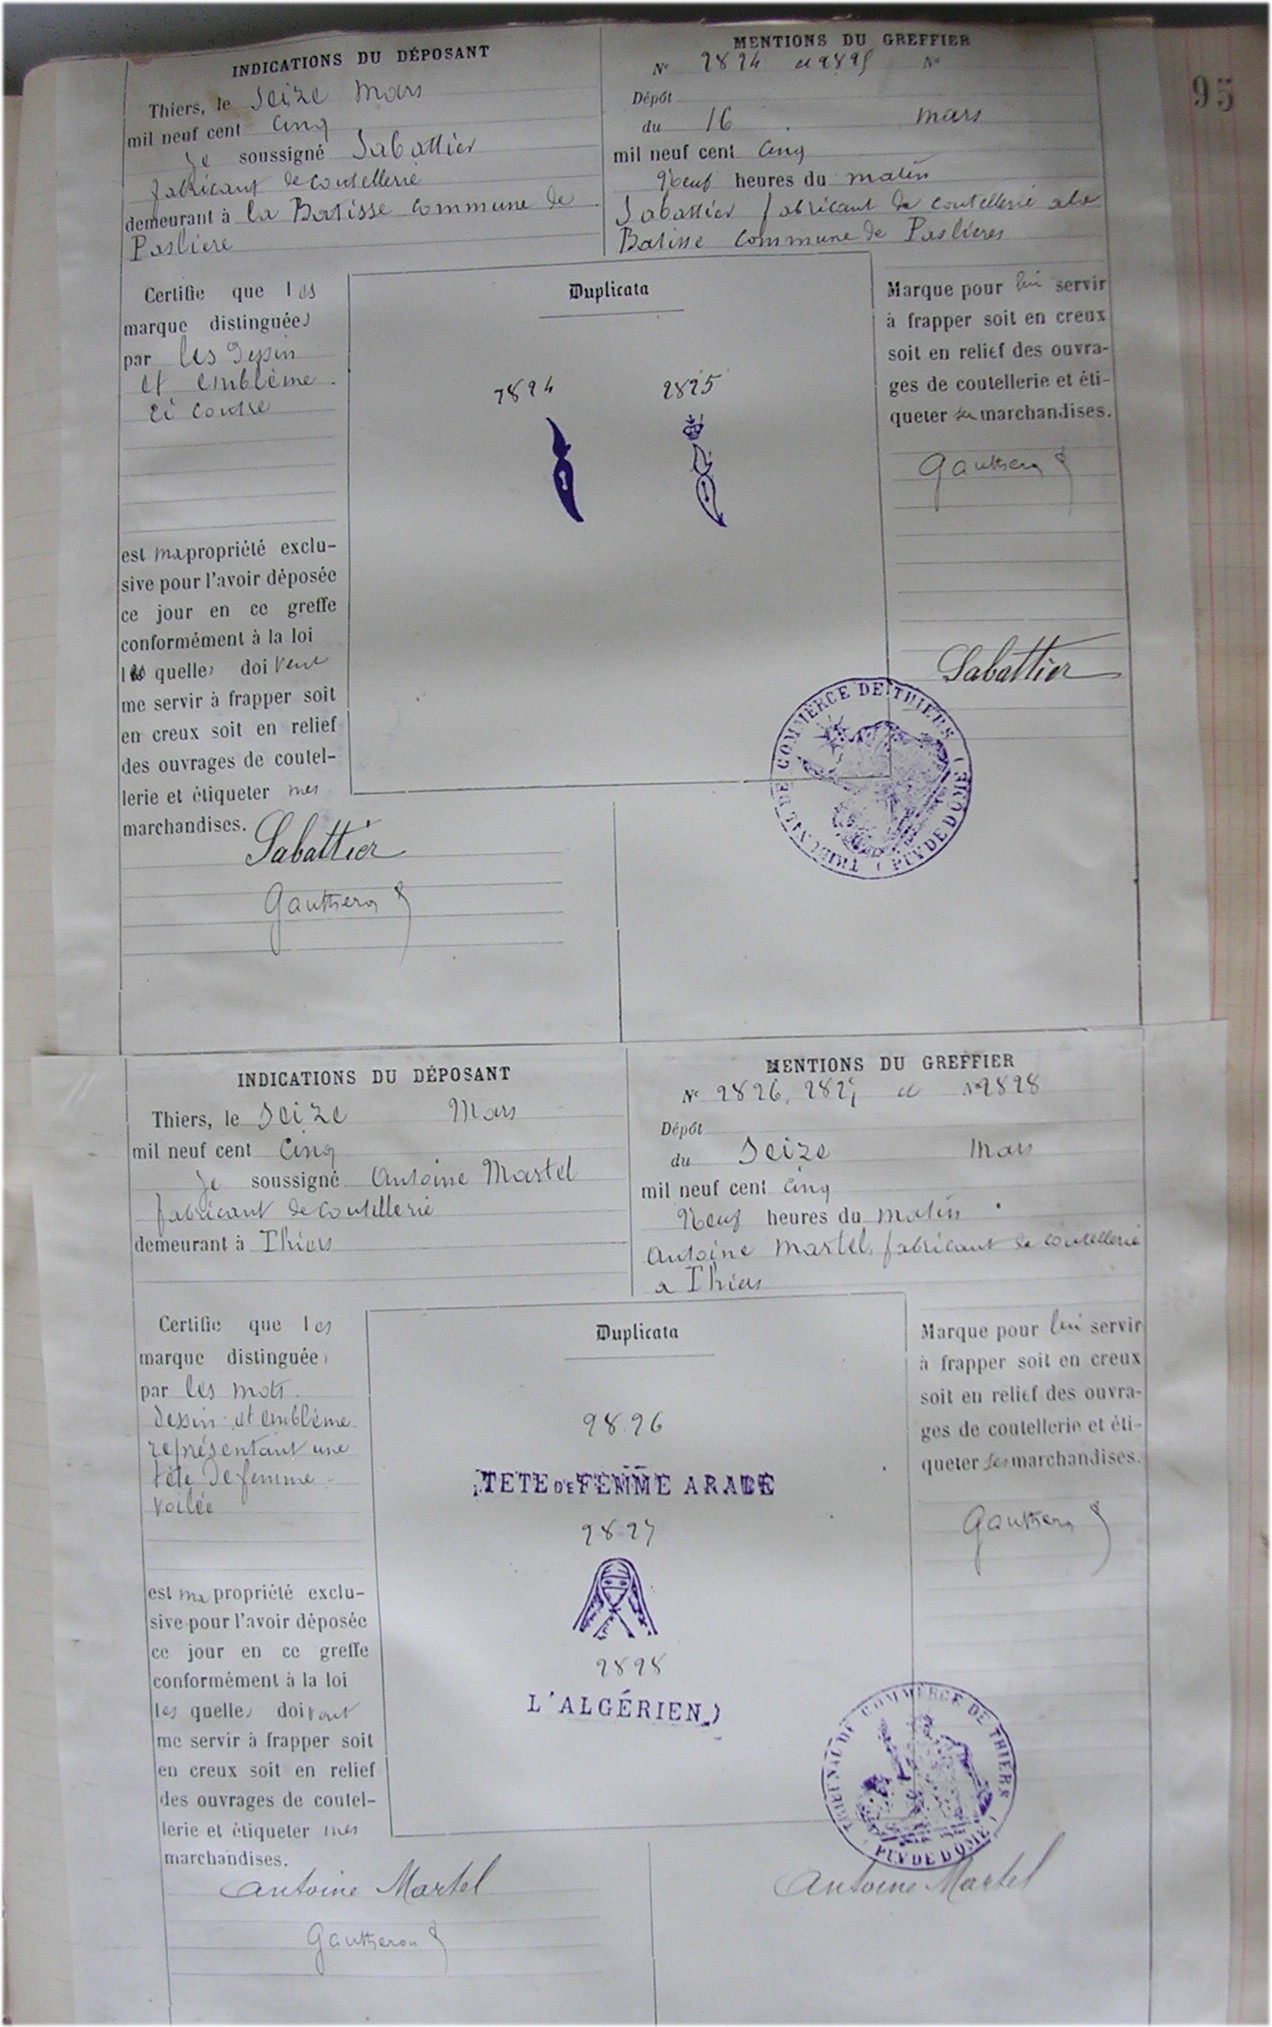 95
INDICATIONS DU DÉPOSANT
Thiers, le Seize Mars
mil neuf cent Cinq
Je soussigné Sabattier
fabricant de coutellerie
demeurant à la Batisse commune de
Paslière
MENTIONS DU GREFFIER
No 2824 et 2825 No
Dépôt
du 16 mars
mil neuf cent cinq
Neuf heures du matin
Sabattier fabricant de coutellerie à la
Batisse commune de Paslieres
Certifie que les
marque distinguées
par les dessin
et emblème
ci contre
est ma propriété exclu-
sive pour l'avoir déposée
ce jour en ce greffe
conformément à la loi
les quelles doivent
me servir à frapper soit
en creux soit en relief
des ouvrages de coutel-
lerie et étiqueter mes
marchandises.
Sabattier
Gautheron
Duplicata
2824 2825
Marque pour lui servir
à frapper soit en creux
soit en relief des ouvra-
ges de coutellerie et éti-
queter ses marchandises.
Gautheron
Sabattier
TRIBUNAL DE COMMERCE DE THIERS
(PUY DE DOME)
INDICATIONS DU DÉPOSANT
Thiers, le Seize Mars
mil neuf cent Cinq
Je soussigné Antoine Martel
fabricant de coutellerie
demeurant à Thiers
MENTIONS DU GREFFIER
No 2826, 2827 et No 2828
Dépôt
du Seize Mars
mil neuf cent cinq
Neuf heures du matin
Antoine Martel, fabricant de coutellerie
a Thiers
Certifie que les
marque distinguées
par les mots
dessin et emblème
représentant une
tête de femme
voilée
est ma propriété exclu-
sive pour l'avoir déposée
ce jour en ce greffe
conformément à la loi
les quelles doivent
me servir à frapper soit
en creux soit en relief
des ouvrages de coutel-
lerie et étiqueter mes
marchandises.
Antoine Martel
Gautheron
Duplicata
2826
TETE DE FEMME ARABE
2827
2828
L'ALGÉRIEN
Marque pour lui servir
à frapper soit en creux
soit en relief des ouvra-
ges de coutellerie et éti-
queter ses marchandises.
Gautheron
TRIBUNAL DE COMMERCE DE THIERS
(PUY DE DOME)
Antoine Martel